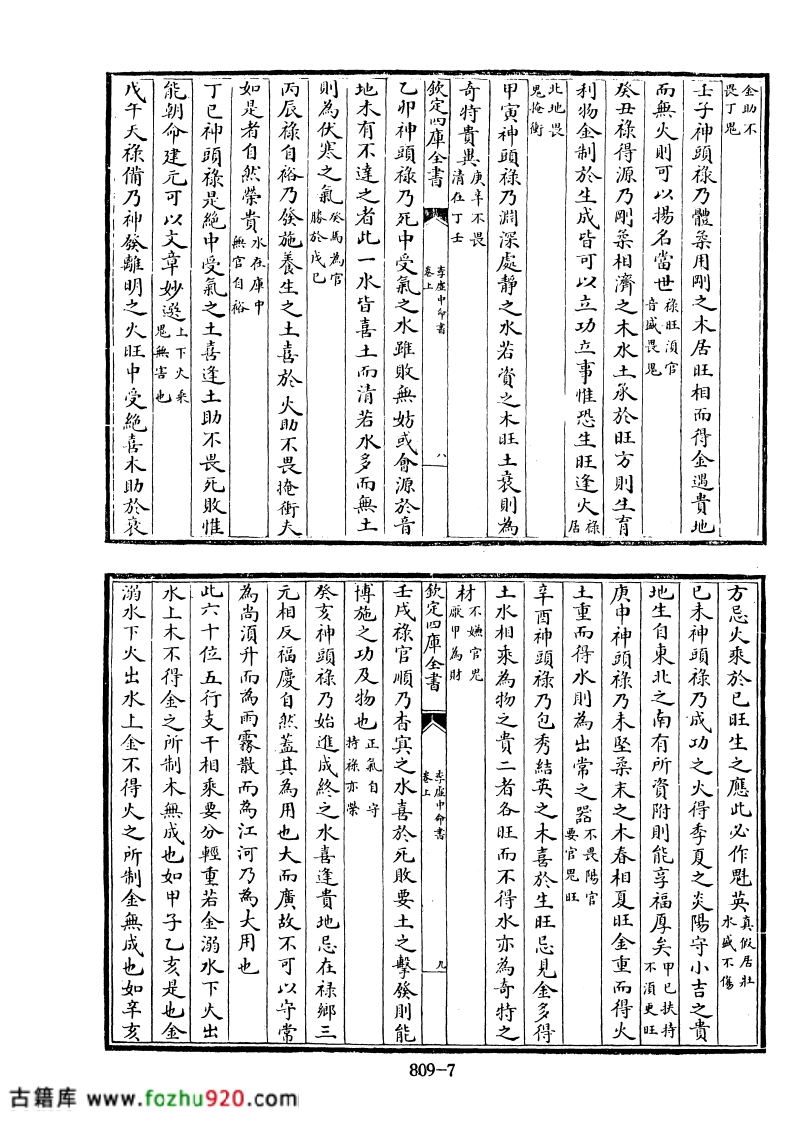 金助不
畏丁鬼
壬子神頭祿乃體柔用剛之木居旺相而得金遇貴地
而無火則可以揚名當世祿旺須官
音盛畏鬼
癸丑祿得源乃剛柔相濟之木水土承於旺方則生育
利物金制於生成皆可以立功立事惟恐生旺逢火祿
居
北地畏
鬼掩衝
甲寅神頭祿乃淵深處靜之水若資之木旺土衰則為
奇特貴異庚辛不畏
清在丁壬
欽定四庫全書
李虛中命書
卷上
八
乙卯神頭祿乃死中受氣之水雖敗無妨或會源於音
地木有不達之者此一水皆喜土而清若水多而無土
則為伏寒之氣癸馬為官
勝於戊己
丙辰祿自裕乃發施養生之土喜於火助不畏掩衝夫
如是者自然榮貴水在庫中
無官自裕
丁巳神頭祿是絶中受氣之土喜逢土助不畏死敗惟
能朝命建元可以文章妙選上下火乘
鬼無害也
戊午天祿備乃神發離明之火旺中受絶喜木助於衰
方忌火乘於已旺生之應此必作魁英真假居壯
水盛不傷
己未神頭祿乃成功之火得季夏之炎陽守小吉之貴
地生自東北之南有所資附則能享福厚矣甲己扶持
不須更旺
庚申神頭祿乃未堅柔末之木春相夏旺金重而得火
土重而得水則為出常之器不畏陽官
要官鬼旺
辛酉神頭祿乃包秀結英之木喜於生旺忌見金多得
土水相乘為物之貴二者各旺而不得水亦為奇特之
材不嫌官鬼
厭甲為財
欽定四庫全書
李虛中命書
卷上
九
壬戌祿官順乃杳冥之水喜於死敗要土之擊發則能
博施之功及物也正氣自守
持祿亦榮
癸亥神頭祿乃始進成終之水喜逢貴地忌在祿鄉三
元相反福慶自然蓋其為用也大而廣故不可以守常
為尚須升而為雨霧散而為江河乃為大用也
此六十位五行支干相乘要分輕重若金溺水下火出
水上木不得金之所制木無成也如甲子乙亥是也金
溺水下火出水上金不得火之所制金無成也如辛亥
809-7
古籍库 www.fozhu920.com